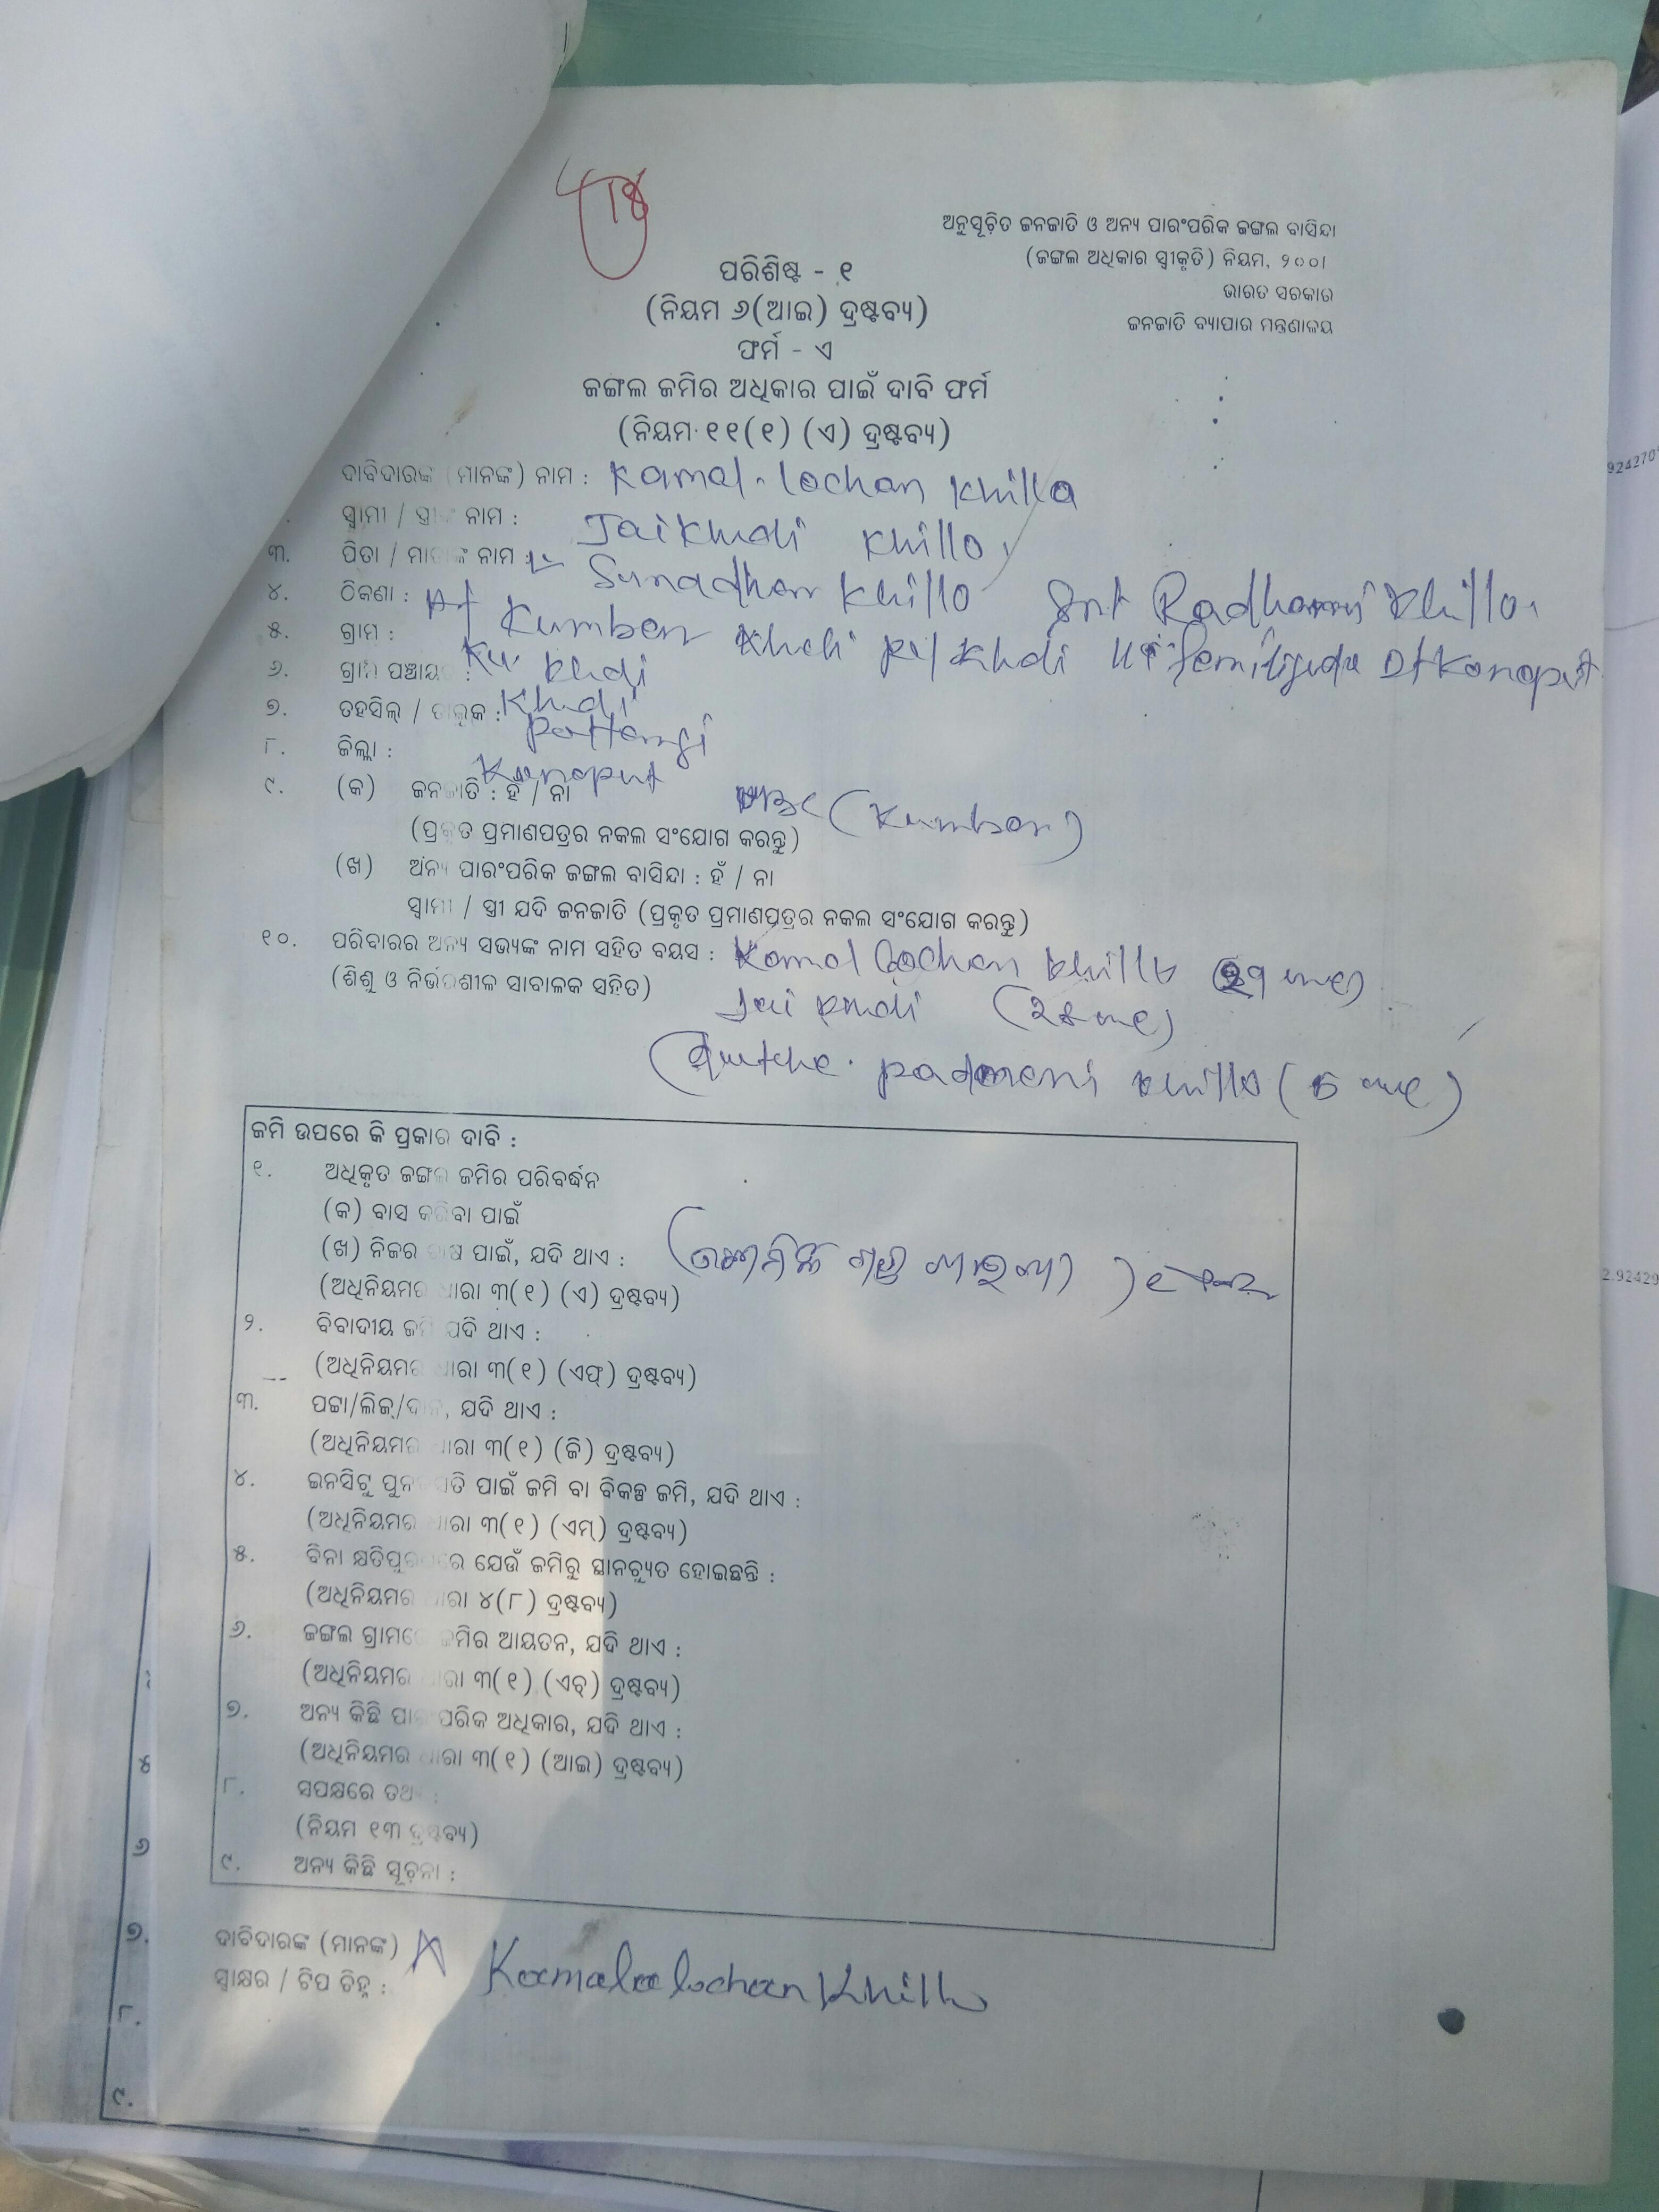 ୩୪
ଅନୁସୂଚିତ ଜନଜାତି ଓ ଅନ୍ୟ ପାରଂପରିକ ଜଙ୍ଗଲ ବାସିନ୍ଦା
(ଜଙ୍ଗଲ ଅଧିକାର ସ୍ୱୀକୃତି) ନିୟମ, ୨୦୦୮
ଭାରତ ସରକାର
ଜନଜାତି ବ୍ୟାପାର ମନ୍ତ୍ରଣାଳୟ
ପରିଶିଷ୍ଟ - ୧
(ନିୟମ ୬(ଆଇ) ଦ୍ରଷ୍ଟବ୍ୟ)
ଫର୍ମ - ଏ
ଜଙ୍ଗଲ ଜମିର ଅଧିକାର ପାଇଁ ଦାବି ଫର୍ମ
(ନିୟମ ୧୧(୧) (ଏ) ଦ୍ରଷ୍ଟବ୍ୟ)
ଦାବିଦାରଙ୍କ (ମାନଙ୍କ) ନାମ : Kamal. lochan Khillo
ସ୍ୱାମୀ / ସ୍ତ୍ରୀଙ୍କ ନାମ : Jaikhudi Khillo
୩. ପିତା / ମାତାଙ୍କ ନାମ : Sunadhar Khillo Smt Radhamni Khillo
୪. ଠିକଣା : At Kumbar Khudi Khudi Semiliguda Dt Koraput
୫. ଗ୍ରାମ : Khudi
୬. ଗ୍ରାମ ପଞ୍ଚାୟତ : Khudi
୭. ତହସିଲ୍ / ତାଲୁକ : Pottangi
୮. ଜିଲ୍ଲା : Koraput
୯. (କ) ଜନଜାତି : ହଁ / ନା (Kumbar)
(ପ୍ରକୃତ ପ୍ରମାଣପତ୍ରର ନକଲ ସଂଯୋଗ କରନ୍ତୁ)
(ଖ) ଅନ୍ୟ ପାରଂପରିକ ଜଙ୍ଗଲ ବାସିନ୍ଦା : ହଁ / ନା
ସ୍ୱାମୀ / ସ୍ତ୍ରୀ ଯଦି ଜନଜାତି (ପ୍ରକୃତ ପ୍ରମାଣପତ୍ରର ନକଲ ସଂଯୋଗ କରନ୍ତୁ)
୧୦. ପରିବାରର ଅନ୍ୟ ସଭ୍ୟଙ୍କ ନାମ ସହିତ ବୟସ : Kamal Lochan Khillo
(ଶିଶୁ ଓ ନିର୍ଭରଶୀଳ ସାବାଳକ ସହିତ) Jai khudi
Padmeni Khillo
ଜମି ଉପରେ କି ପ୍ରକାର ଦାବି :
୧. ଅଧିକୃତ ଜଙ୍ଗଲ ଜମିର ପରିବର୍ଦ୍ଧନ
(କ) ବାସ କରିବା ପାଇଁ
(ଖ) ନିଜର ଚାଷ ପାଇଁ, ଯଦି ଥାଏ :
(ଅଧିନିୟମର ଧାରା ୩(୧) (ଏ) ଦ୍ରଷ୍ଟବ୍ୟ)
୨. ବିବାଦୀୟ ଜମି ଯଦି ଥାଏ :
(ଅଧିନିୟମର ଧାରା ୩(୧) (ଏଫ୍) ଦ୍ରଷ୍ଟବ୍ୟ)
୩. ପଟ୍ଟା/ଲିଜ୍/ଦାନ, ଯଦି ଥାଏ :
(ଅଧିନିୟମର ଧାରା ୩(୧) (ଜି) ଦ୍ରଷ୍ଟବ୍ୟ)
୪. ଇନସିଟୁ ପୁନଃବସତି ପାଇଁ ଜମି ବା ବିକଳ୍ପ ଜମି, ଯଦି ଥାଏ :
(ଅଧିନିୟମର ଧାରା ୩(୧) (ଏମ୍) ଦ୍ରଷ୍ଟବ୍ୟ)
୫. ବିନା କ୍ଷତିପୂରଣରେ ଯେଉଁ ଜମିରୁ ସ୍ଥାନଚ୍ୟୁତ ହୋଇଛନ୍ତି :
(ଅଧିନିୟମର ଧାରା ୪(୮) ଦ୍ରଷ୍ଟବ୍ୟ)
୬. ଜଙ୍ଗଲ ଗ୍ରାମରେ ଜମିର ଆୟତନ, ଯଦି ଥାଏ :
(ଅଧିନିୟମର ଧାରା ୩(୧) (ଏଚ୍) ଦ୍ରଷ୍ଟବ୍ୟ)
୭. ଅନ୍ୟ କିଛି ପାରଂପରିକ ଅଧିକାର, ଯଦି ଥାଏ :
(ଅଧିନିୟମର ଧାରା ୩(୧) (ଆଇ) ଦ୍ରଷ୍ଟବ୍ୟ)
୮. ସପକ୍ଷରେ ତଥ୍ୟ :
(ନିୟମ ୧୩ ଦ୍ରଷ୍ଟବ୍ୟ)
୯. ଅନ୍ୟ କିଛି ସୂଚନା :
ଦାବିଦାରଙ୍କ (ମାନଙ୍କ)
ସ୍ୱାକ୍ଷର / ଟିପ ଚିହ୍ନ : Kamalalochan Khillo